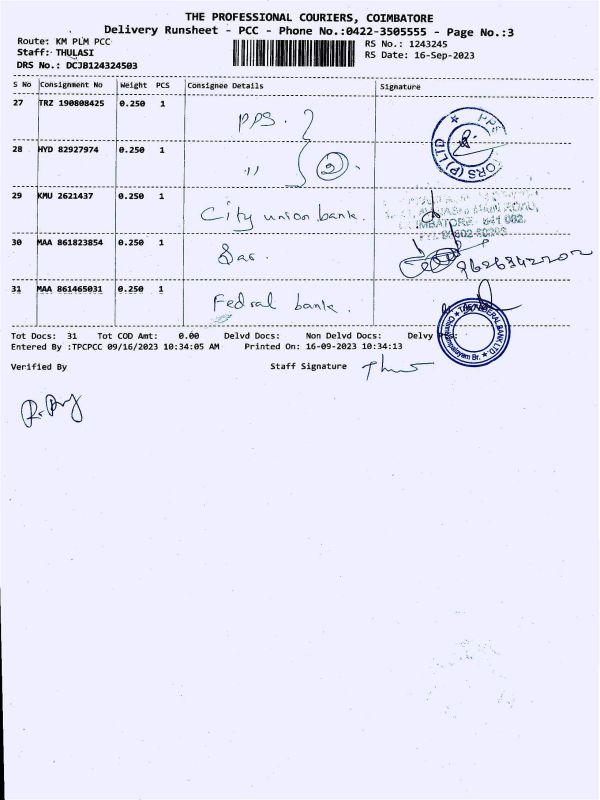 THE PROFESSIONAL COURIERS, COIMBATORE
Delivery Runsheet - PCC - Phone No.:0422-3505555 - Page No.:3
Route: KM PLM PCC
Staff: THULASI
DRS No.: DCJB124324503
RS No.: 1243245
RS Date: 16-Sep-2023
S No Consignment No Weight PCS Consignee Details Signature
27 TRZ 190808425 0.250 1 PPS.
28 HYD 82927974 0.250 1 ,, 2.
29 KMU 2621437 0.250 1 City union bank.
30 MAA 861823854 0.250 1 9626342202
31 MAA 861465031 0.250 1 Fedral bank.
Tot Docs: 31 Tot COD Amt: 0.00 Delvd Docs: Non Delvd Docs: Delvy
Entered By :TPCPCC 09/16/2023 10:34:05 AM Printed On: 16-09-2023 10:34:13
Verified By Staff Signature